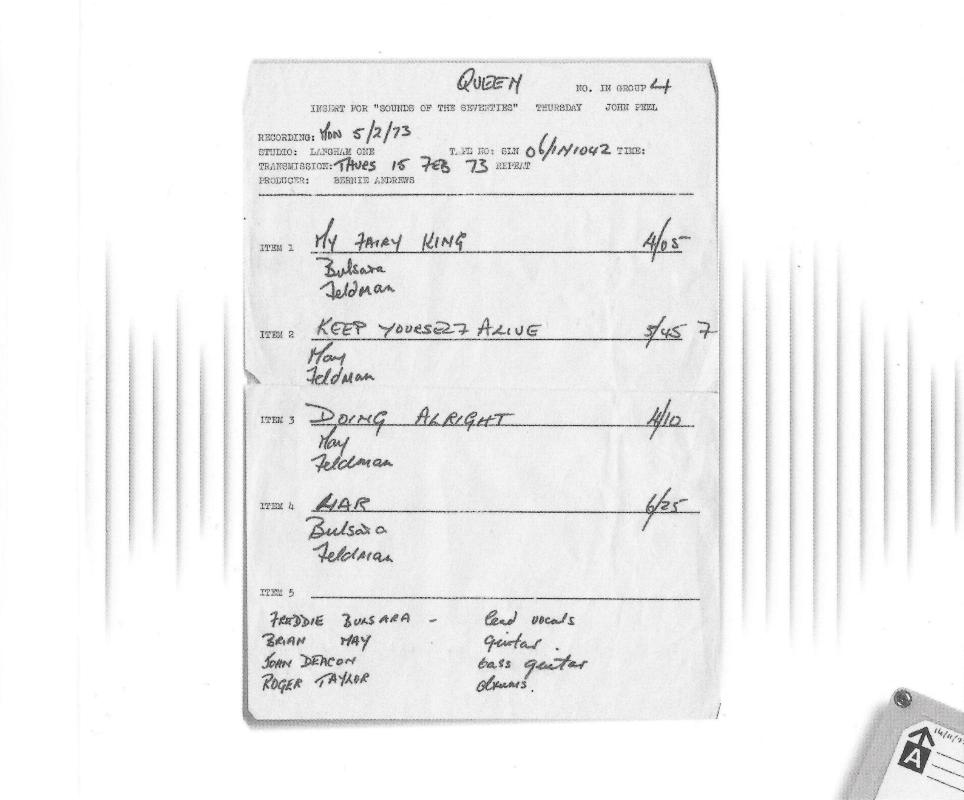 QUEEN
NO. IN GROUP 4
INSERT FOR "SOUNDS OF THE SEVENTIES" THURSDAY JOHN PEEL
RECORDING: MON 5/2/73
STUDIO: LANGHAM ONE TAPE NO: SLN 06/IN1042 TIME:
TRANSMISSION: THURS 15 FEB 73 REPEAT
PRODUCER: BERNIE ANDREWS
ITEM 1 MY FAIRY KING 4/05
Bulsara
Feldman
ITEM 2 KEEP YOURSELF ALIVE 3/45
May
Feldman
ITEM 3 DOING ALRIGHT 4/10
May
Feldman
ITEM 4 LIAR 6/25
Bulsara
Feldman
ITEM 5
FREDDIE BULSARA - lead vocals
BRIAN MAY guitar.
JOHN DEACON bass guitar
ROGER TAYLOR drums.
A